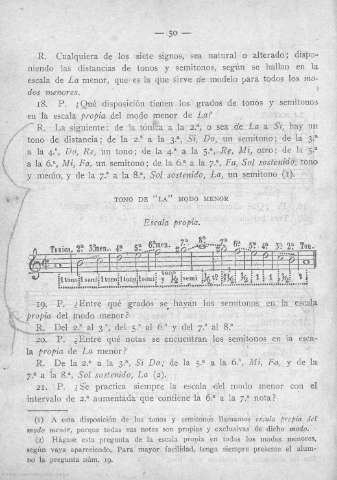 — 50 —
R. Cualquiera de los siete signos, sea natural o alterado; dispo-
niendo las distancias de tonos y semitonos, según se hallan en la
escala de La menor, que es la que sirve de modelo para todos los mo-
dos menores.
18. P. ¿Qué disposición tienen los grados de tonos y semitonos
en la escala propia del modo menor de La?
R. La siguiente: de la tónica a la 2.ª, o sea de La a Si, hay un
tono de distancia; de la 2.ª a la 3.ª, Si, Do, un semitono; de la 3.ª
a la 4.ª, Do, Re, un tono; de la 4.ª a la 5.ª, Re, Mi, otro; de la 5.ª
a la 6.ª, Mi, Fa, un semitono; de la 6.ª a la 7.ª, Fa, Sol sostenido, tono
y medio, y de la 7.ª a la 8.ª, Sol sostenido, La, un semitono (1).
TONO DE "LA" MODO MENOR
Escala propia.
Tónica. 2ª 3ª men. 4ª 5ª 6ª men. 7ª 8ª 7ª 6ª 5ª 4ª 3ª 2ª Ton.
1 tono semi 1 tono 1 tono semi tono y ½ semi
19. P. ¿Entre qué grados se hayan los semitonos en la escala
propia del modo menor?
R. Del 2.º al 3.º, del 5.º al 6.º y del 7.º al 8.º
20. P. ¿Entre qué notas se encuentran los semitonos en la esca-
la propia de La menor?
R. De la 2.ª a la 3.ª, Si Do; de la 5.ª a la 6.ª, Mi, Fa, y de la
7.ª a la 8.ª, Sol sostenido, La (2).
21. P. ¿Se practica siempre la escala del modo menor con el
intervalo de 2.ª aumentada que contiene la 6.ª a la 7.ª nota?
(1) A esta disposición de los tonos y semitonos llamamos escala propia del
modo menor, porque todas sus notas son propias y exclusivas de dicho modo.
(2) Hágase esta pregunta de la escala propia en todos los modos menores,
según vaya apareciendo. Para mayor facilidad, tenga siempre presente el alum-
no la pregunta núm. 19.